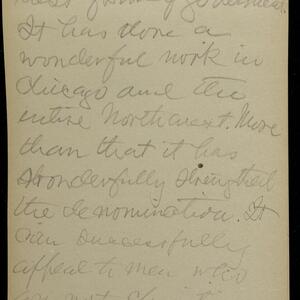 It has done a
wonderful work in
Chicago and the
entire Northwest. More
than that it has
wonderfully strengthed
the denomination. It
can successfully
appeal to men who